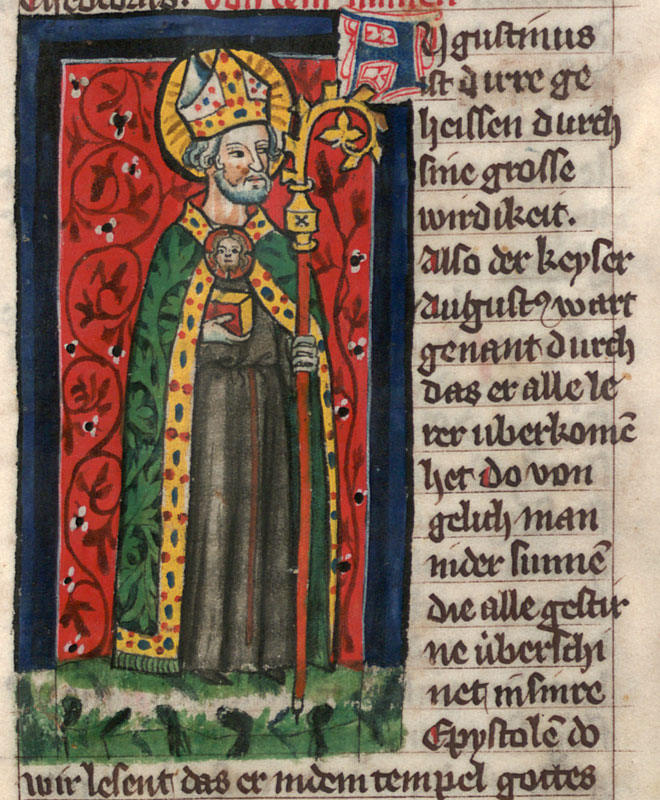 von sent
Augustinus
ist dirre ge
heissen durch
sine grosse
wirdikeit.
Also der keyser
augustꝰ wart
genant durch
das er alle le
rer uberkomē
het do von
gelich man
inder sunnē
die alle gestir
ne überschi
net in sinre
Epystolē do
wir lesent das er in dem tempel gottes